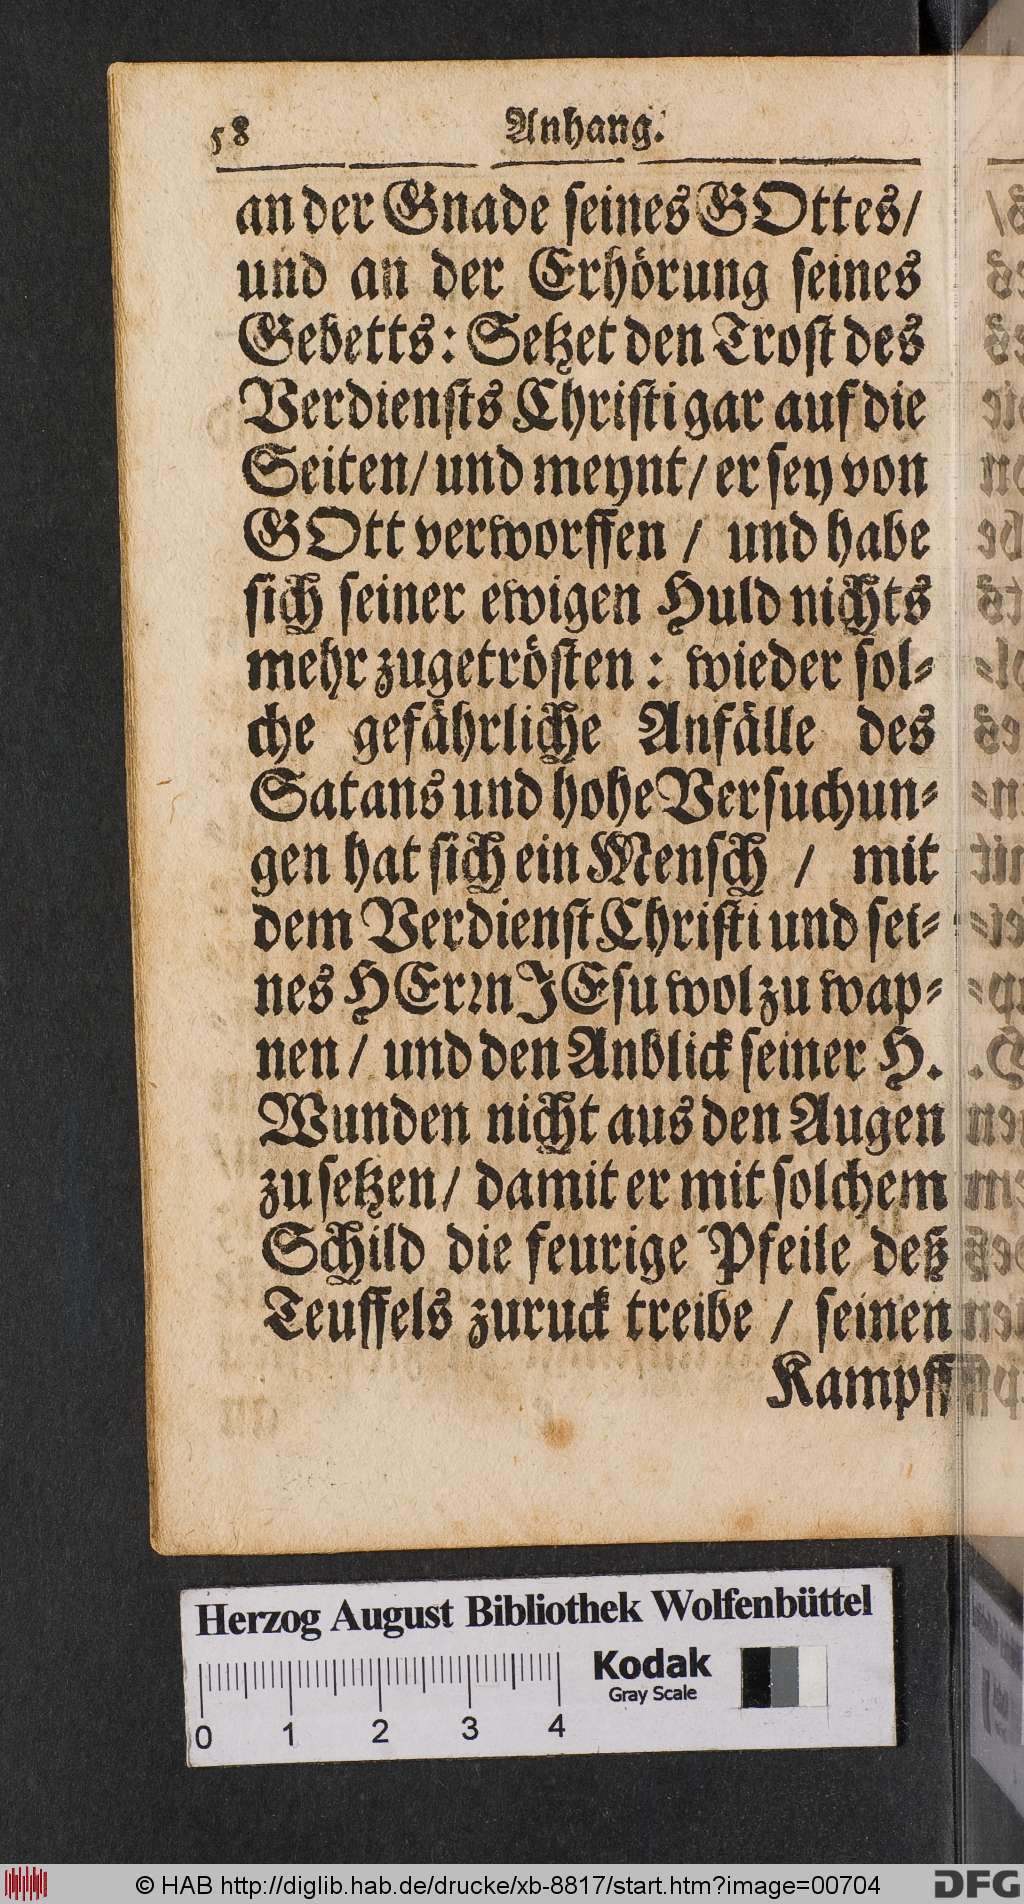 58 Anhang.
an der Gnade seines GOttes/
und an der Erhörung seines
Gebetts: Setzet den Trost des
Verdiensts Christi gar auf die
Seiten/ und meynt/ er sey von
GOtt verworffen / und habe
sich seiner ewigen Huld nichts
mehr zugetrösten: wieder sol-
che gefährliche Anfälle des
Satans und hohe Versuchun-
gen hat sich ein Mensch / mit
dem Verdienst Christi und sei-
nes HErrn JEsu wol zu wap-
nen/ und den Anblick seiner H.
Wunden nicht aus den Augen
zu setzen/ damit er mit solchem
Schild die feurige Pfeile deß
Teuffels zuruck treibe / seinen
Kampff
Herzog August Bibliothek Wolfenbüttel
Kodak
Gray Scale
0 1 2 3 4
© HAB http://diglib.hab.de/drucke/xb-8817/start.htm?image=00704
DFG